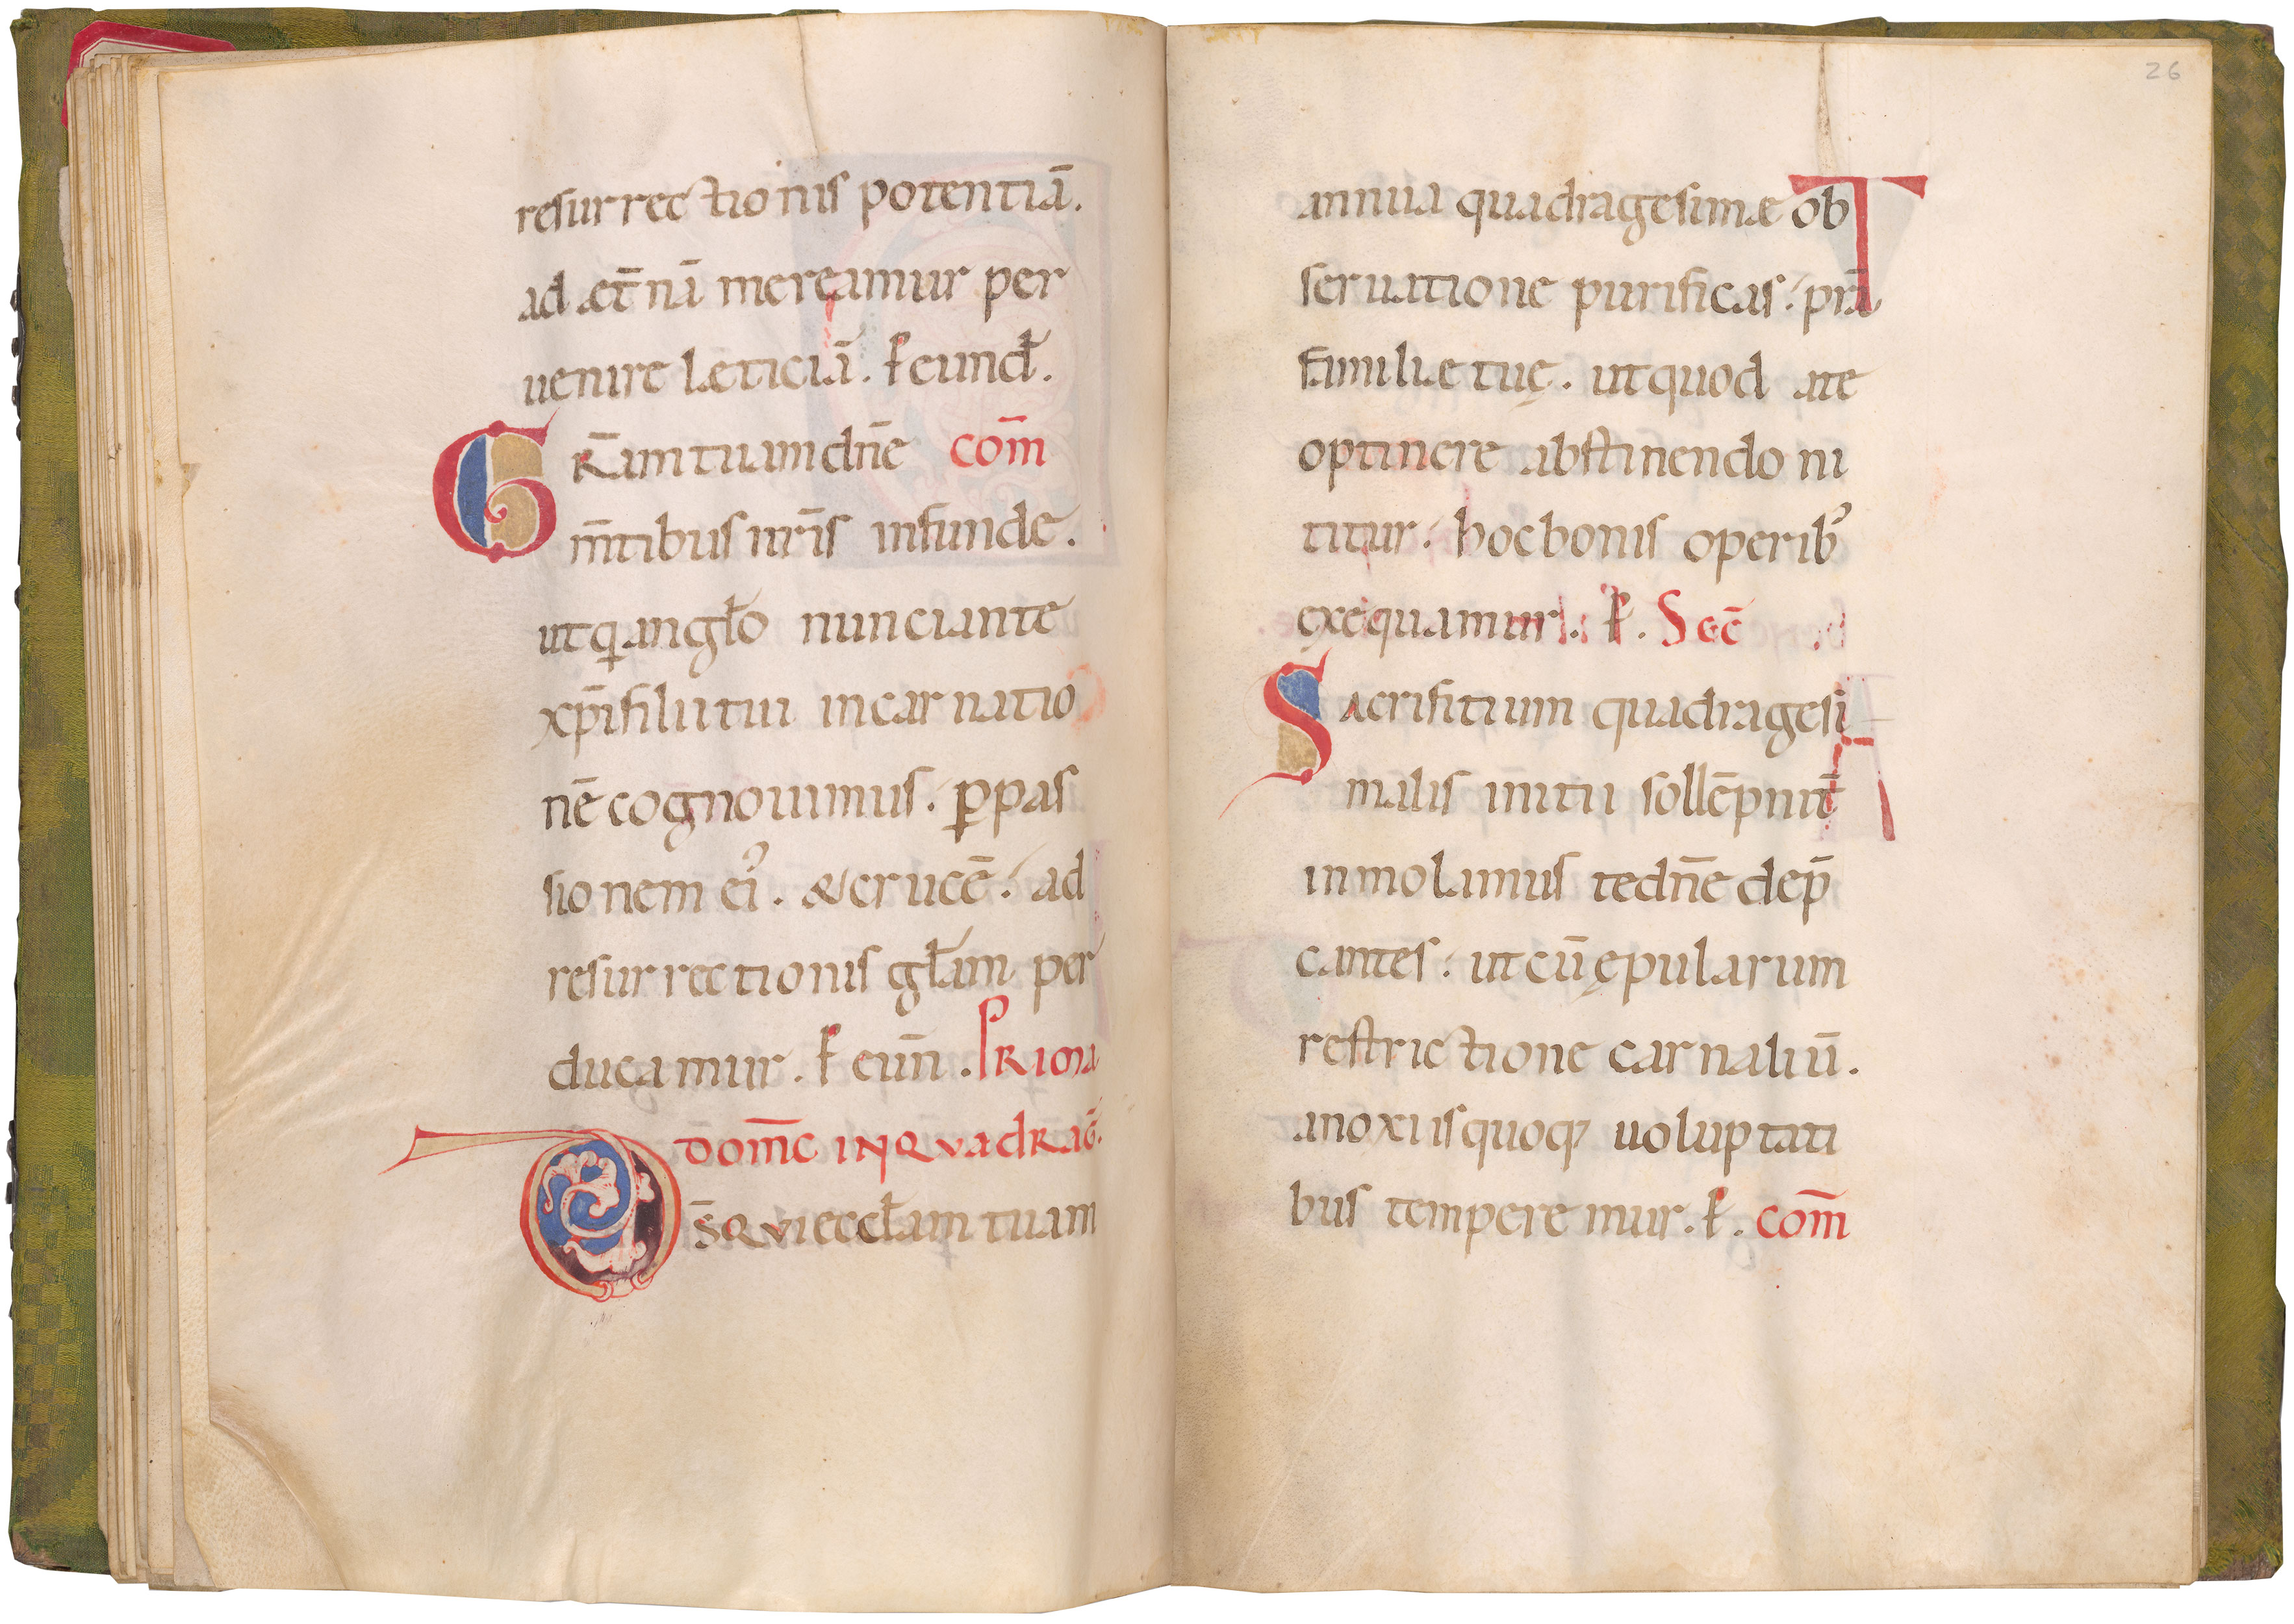 resurrectionis potentiā.
ad æt̄nā mereamur per
uenire læticiā. P eund̄.
GR̄am tuam dn̄e com̄
m̄tibus nr̄is infunde.
ut q angło nunciante
xp̄i filii tui incarnatio
nē cognouimus. ꝑ pas
sionem ei᾽. & crucē. ad
resurrectionis głam per
ducamur. P eun̄. PRIMA
DOM̄C IN QVADRAḠ.
DS̄ QVI eccłam tuam
26
annua quadragesimæ ob
seruatione purificas. prā
familiæ tuę. ut quod a te
optinere abstinendo ni
titur. hoc bonis operib᾽
exequamur. P. Sec̄
Sacrifitium quadragesi
malis initii sollēpnit̄
inmolamus te dn̄e dep̄
cantes. ut cū ępularum
restrictione carnaliū.
a noxiis quoq; uoluptati
bus temperemur. P. com̄